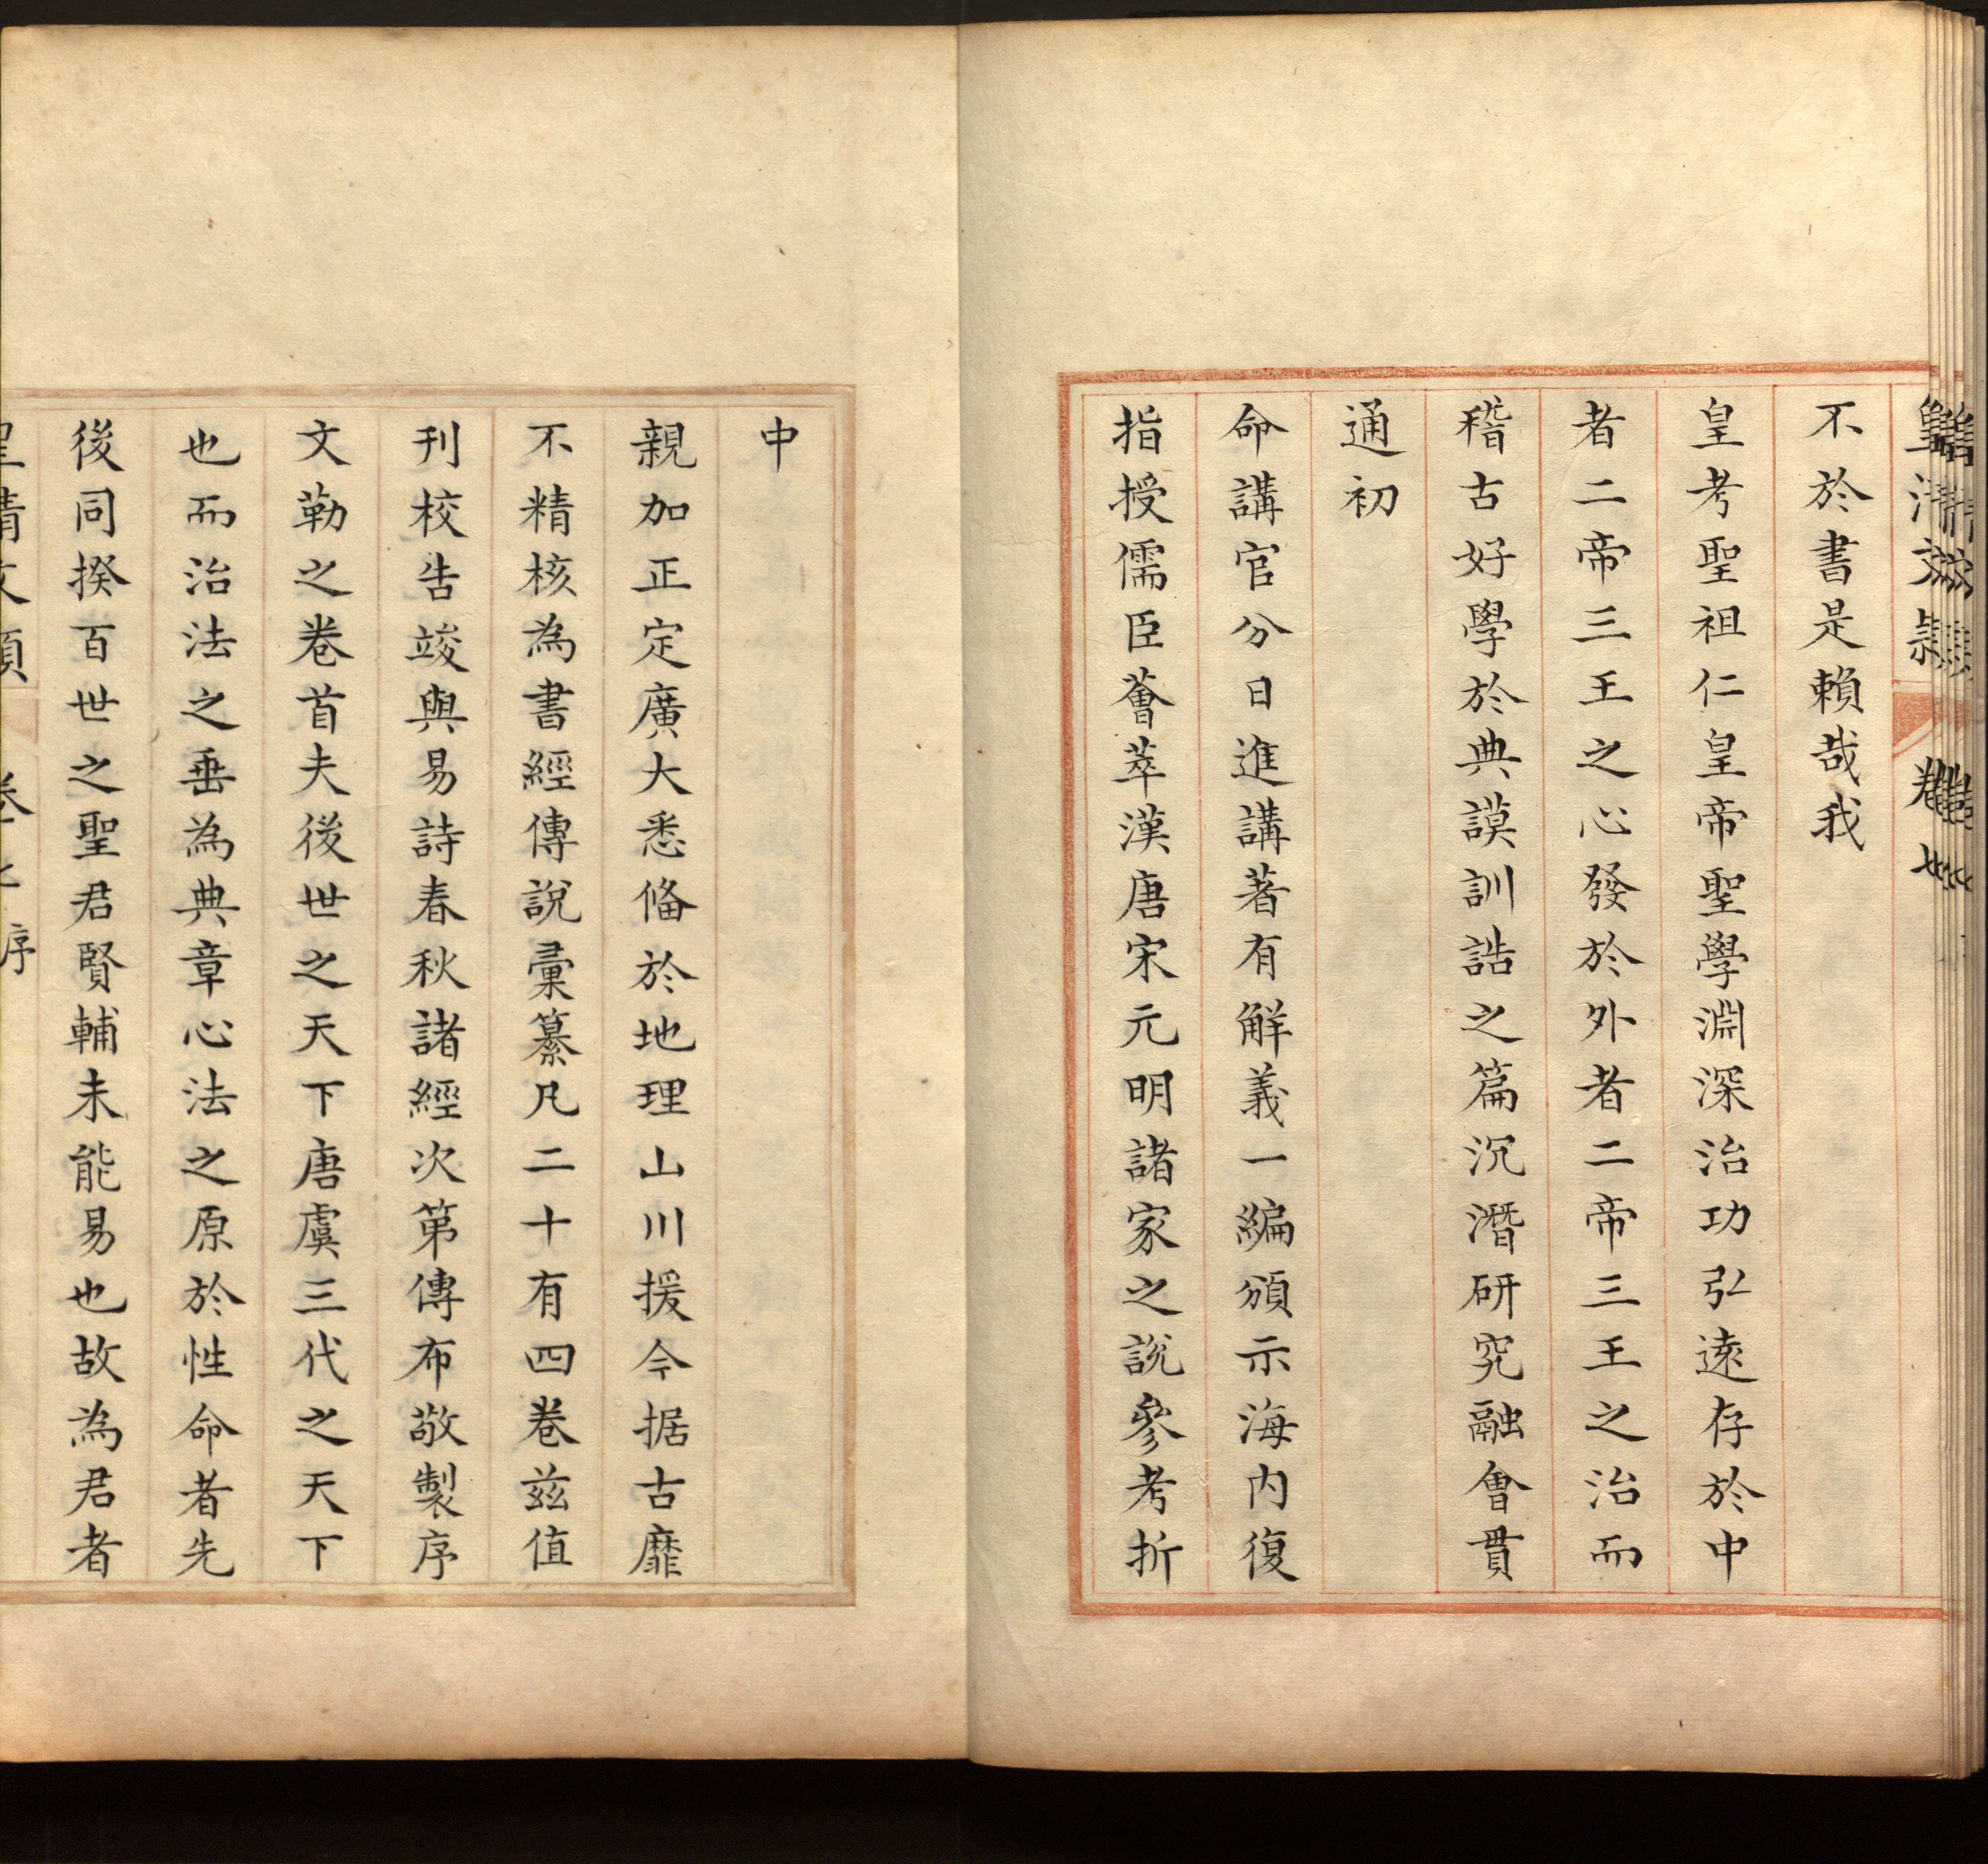 不於書是賴哉我
皇考聖祖仁皇帝聖學淵深治功弘遠存於中
者二帝三王之心發於外者二帝三王之治而
稽古好學於典謨訓誥之篇沉潛研究融會貫
通初
命講官分日進講著有解義一編頒示海內復
指授儒臣薈萃漢唐宋元明諸家之說參考折
中
親加正定廣大悉備於地理山川援今据古靡
不精核為書經傳說彙纂凡二十有四卷茲值
刊校告竣與易詩春秋諸經次第傳布敬製序
文勒之卷首夫後世之天下唐虞三代之天下
也而治法之垂為典章心法之原於性命者先
後同揆百世之聖君賢輔未能易也故為君者
皇清文穎 卷 序